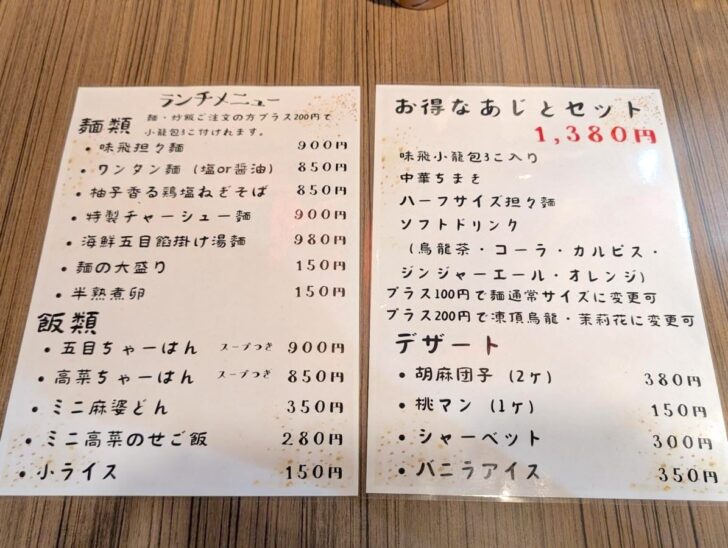 ランチメニュー
麺類
麺・炒飯ご注文の方プラス200円で
小龍包3こ付けれます。
・味飛担々麺 900円
・ワンタン麺 (塩or醤油) 850円
・柚子香る鶏塩ねぎそば 850円
・特製チャーシュー麺 900円
・海鮮五目餡掛け湯麺 980円
・麺の大盛り 150円
・半熟煮卵 150円
飯類
・五目ちゃーはん スープつき 900円
・高菜ちゃーはん スープつき 850円
・ミニ麻婆どん 350円
・ミニ高菜のせご飯 280円
・小ライス 150円
お得なあじとセット
1,380円
味飛小龍包3こ入り
中華ちまき
ハーフサイズ担々麺
ソフトドリンク
(烏龍茶・コーラ・カルピス・
ジンジャーエール・オレンジ)
プラス100円で麺通常サイズに変更可
プラス200円で凍頂烏龍・茉莉花に変更可
デザート
・胡麻団子 (2ヶ) 380円
・桃マン (1ヶ) 150円
・シャーベット 300円
・バニラアイス 350円